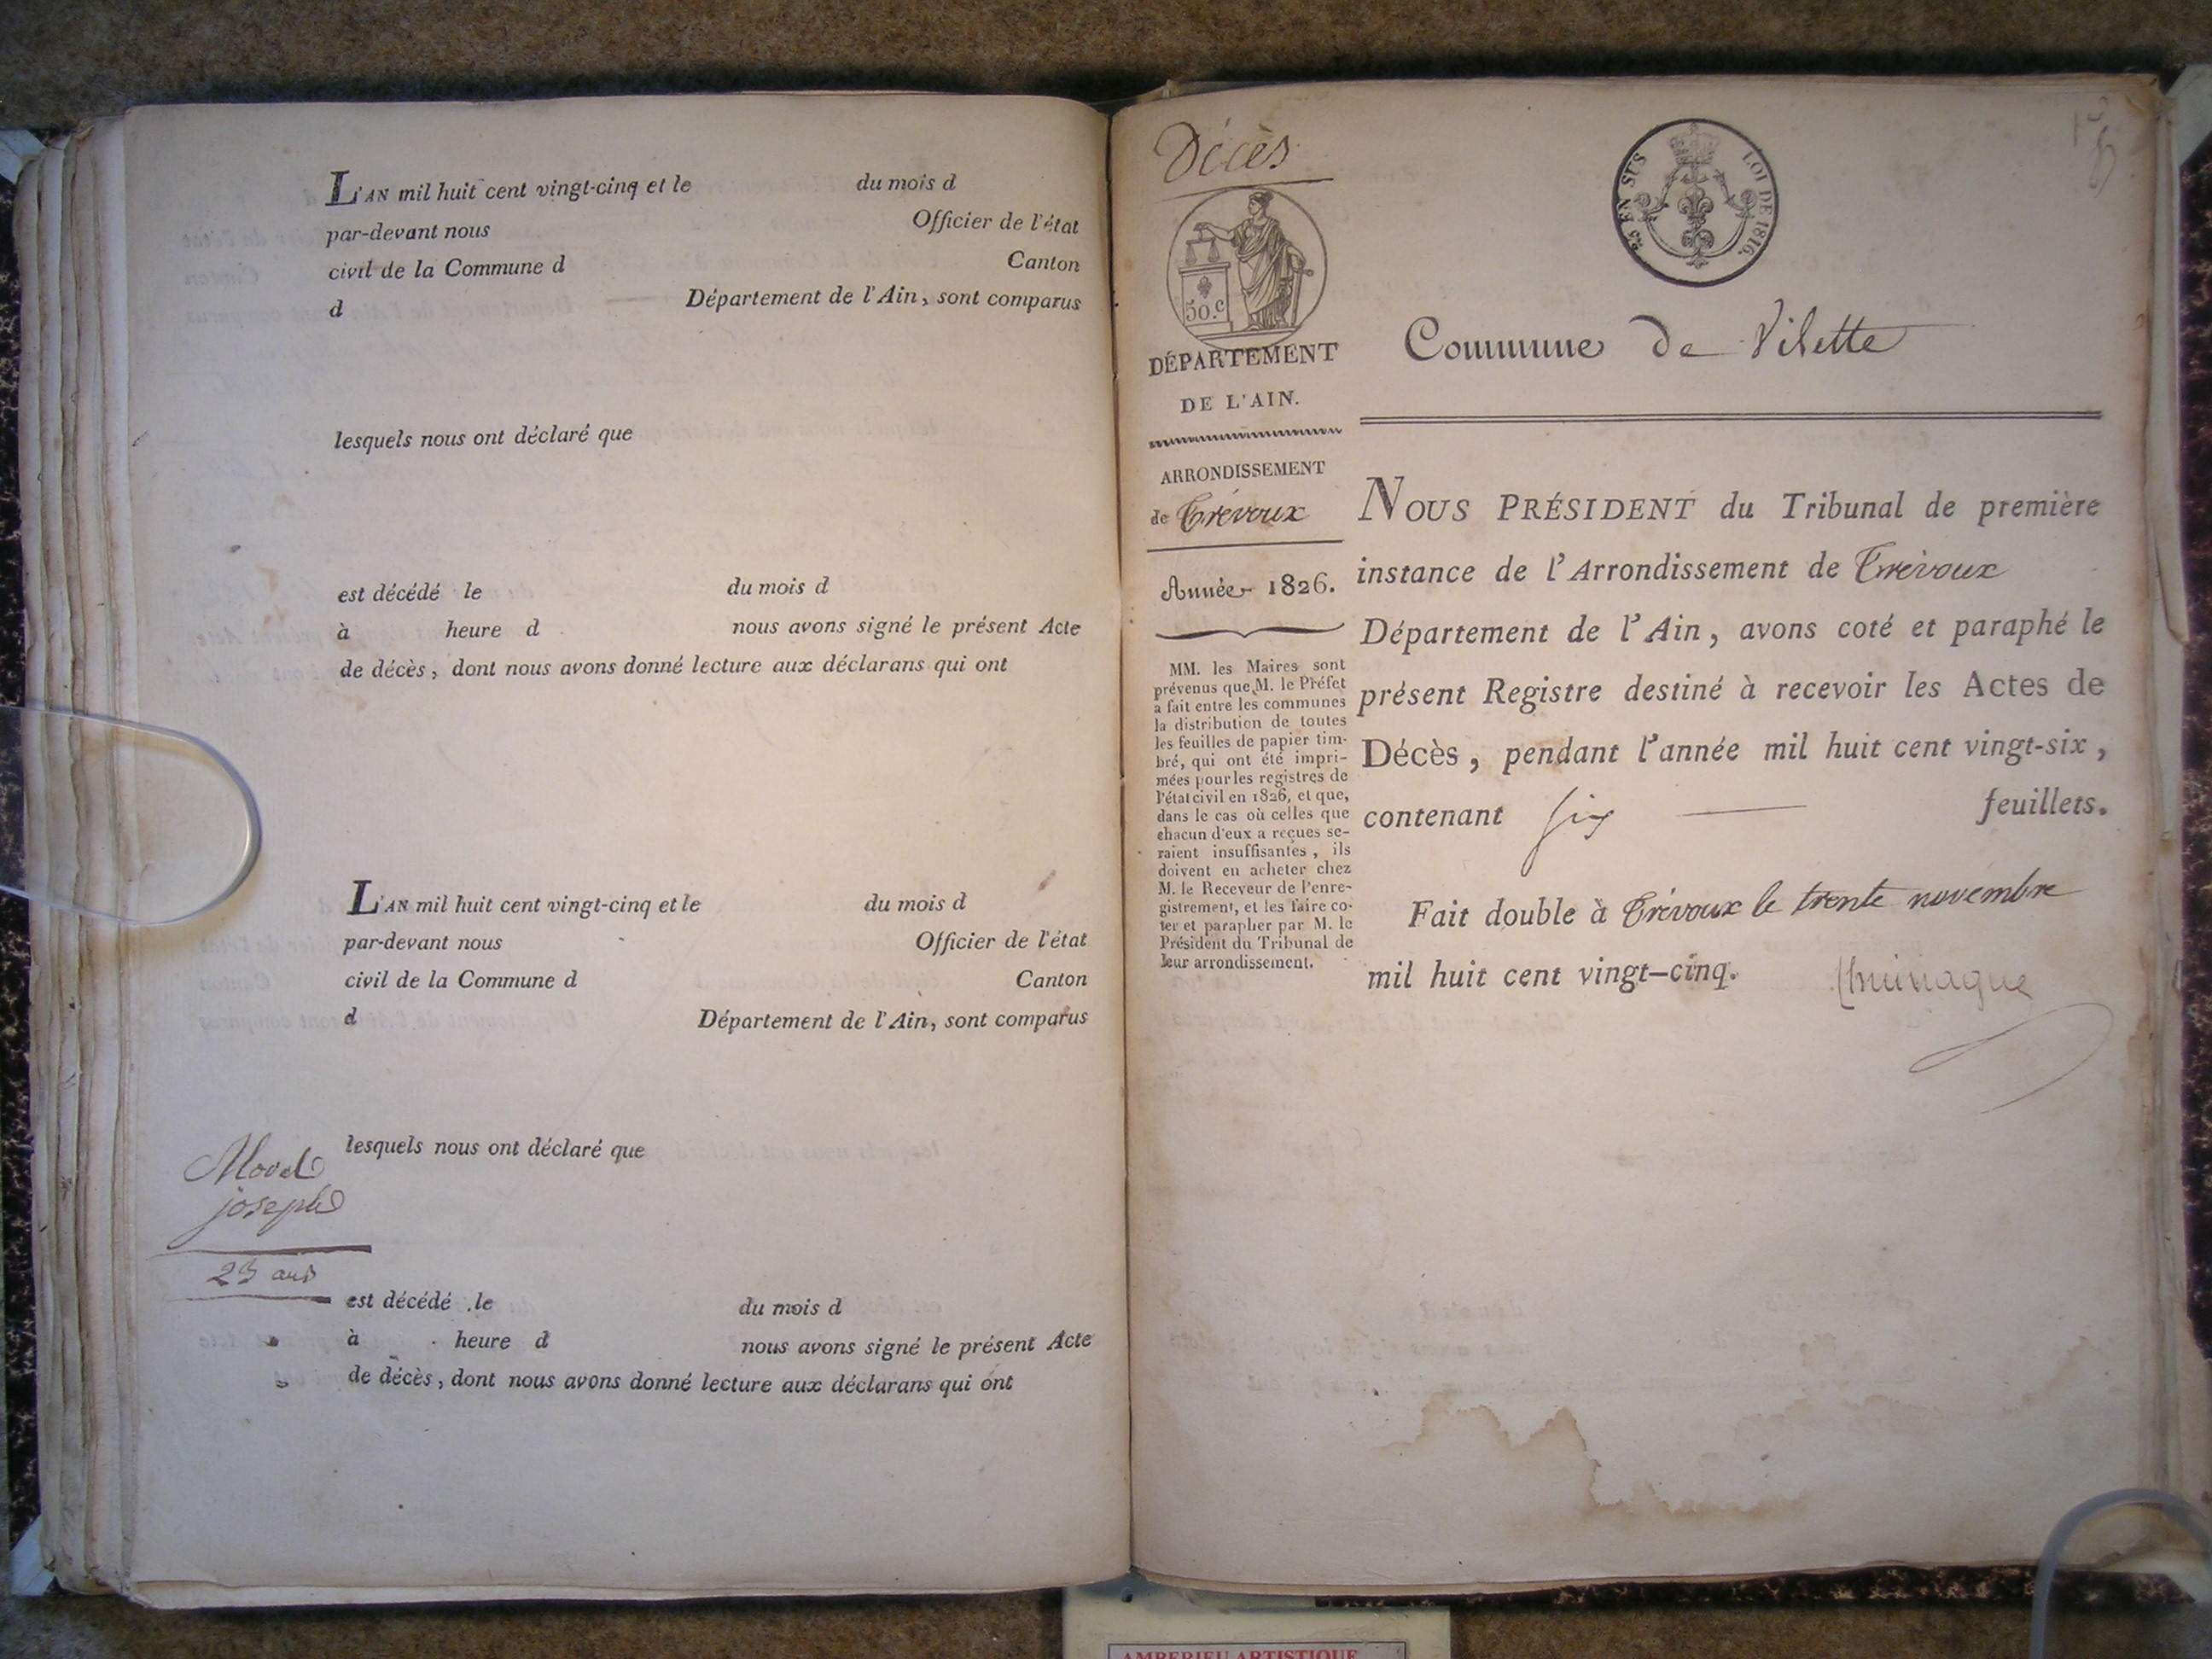 L'AN mil huit cent vingt-cinq et le du mois d
par-devant nous Officier de l'état
civil de la Commune d Canton
d Département de l'Ain, sont comparus
lesquels nous ont déclaré que
est décédé le du mois d
à heure d nous avons signé le présent Acte
de décès, dont nous avons donné lecture aux déclarans qui ont
L'AN mil huit cent vingt-cinq et le du mois d
par-devant nous Officier de l'état
civil de la Commune d Canton
d Département de l'Ain, sont comparus
lesquels nous ont déclaré que
Morel
joseph
23 ans
est décédé le du mois d
à heure d nous avons signé le présent Acte
de décès, dont nous avons donné lecture aux déclarans qui ont
Décès
50.c
DÉPARTEMENT
DE L'AIN.
ARRONDISSEMENT
de Trévoux
Année 1826.
MM. les Maires sont
prévenus que M. le Préfet
a fait entre les communes
la distribution de toutes
les feuilles de papier tim-
bré, qui ont été impri-
mées pour les registres de
l'état civil en 1826, et que,
dans le cas où celles que
chacun d'eux a reçues se-
raient insuffisantes, ils
doivent en acheter chez
M. le Receveur de l'enre-
gistrement, et les faire co-
ter et parapher par M. le
Président du Tribunal de
leur arrondissement.
25 EN SUS
LOI DE 1816.
Commune de Vilette
NOUS PRÉSIDENT du Tribunal de première
instance de l'Arrondissement de Trévoux
Département de l'Ain, avons coté et paraphé le
présent Registre destiné à recevoir les Actes de
Décès, pendant l'année mil huit cent vingt-six,
contenant six feuillets.
Fait double à Trévoux le trente novembre
mil huit cent vingt-cinq.
AMBERIEU ARTISTIQUE